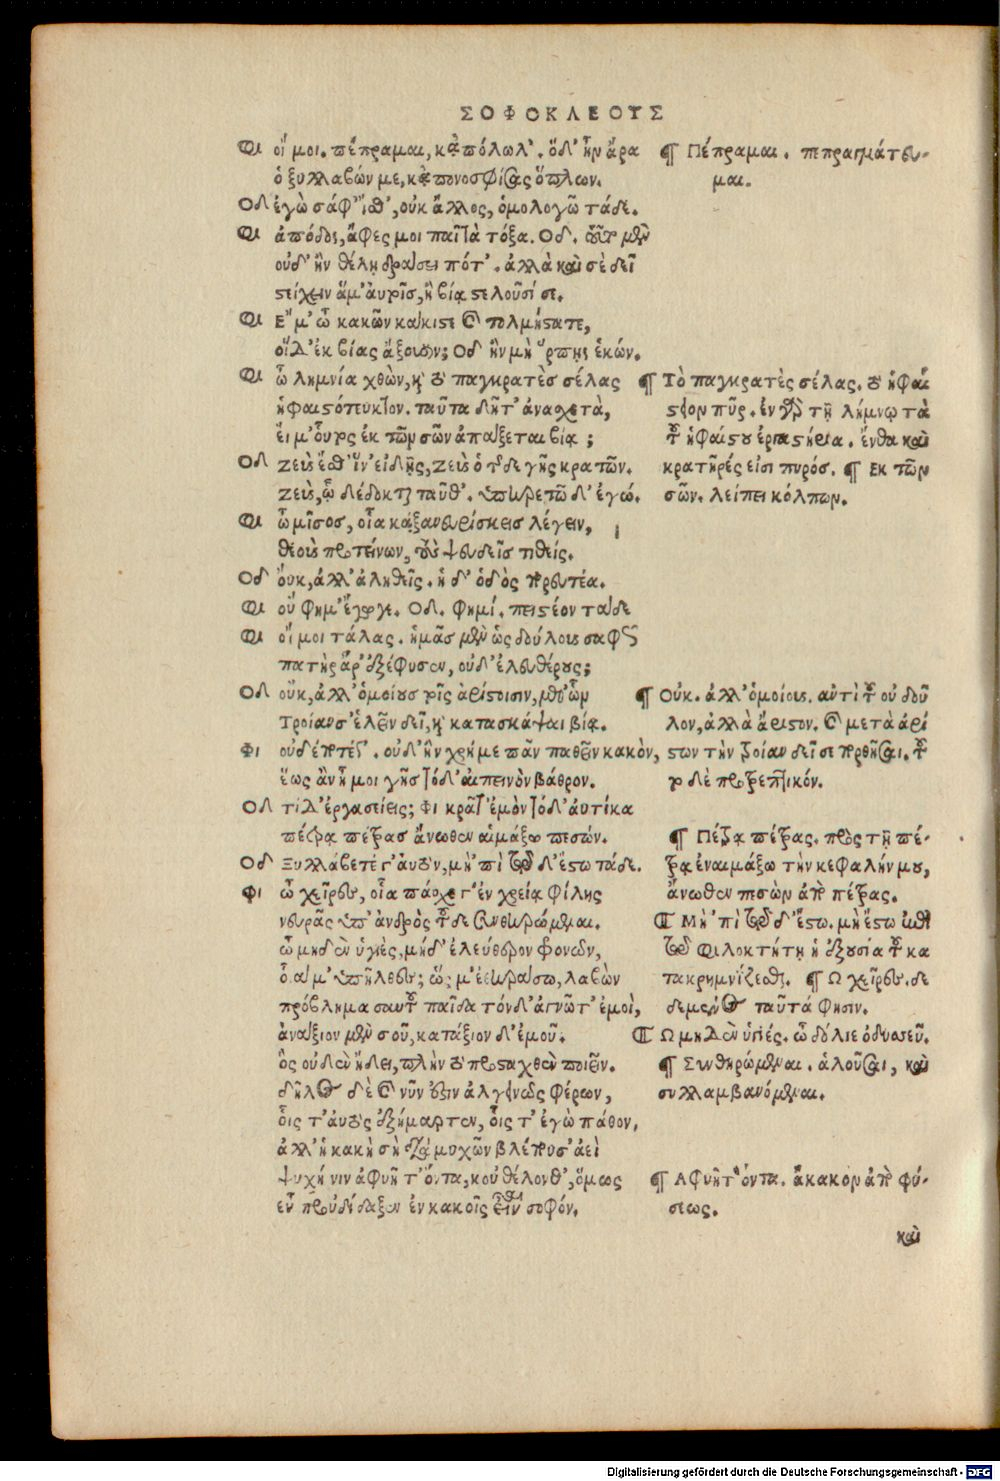 ΣΟΦΟΚΛΕΟΥΣ
Φι οἴ μοι. πέπραμαι, κἀπόλωλ'. ὅδ' ἦν ἄρα
ὁ ξυλλαβών με, κἀπονοσφίσας ὅπλων.
Οδ ἐγὼ σάφ' ἴσθ', οὐκ ἄλλος, ὁμολογῶ τάδε.
Φι ἀπόδος, ἄφες μοι παῖ τὰ τόξα. Οδ. τοῦτο μὲν
οὐδ' ἢν θέλῃ δράσει ποτ'. ἀλλὰ καὶ σὲ δεῖ
στείχειν ἅμ' αὐτοῖς, ἢ βίᾳ στελοῦσί σε.
Φι Ε῎μ' ὦ κακῶν κάκιστε καὶ τολμήστατε,
οἵδ' ἐκ βίας ἄξουσιν; Οδ ἢν μὴ ἕρπῃς ἑκών.
Φι ὦ λημνία χθὼν, καὶ τὸ παγκρατὲς σέλας
ἡφαιστότευκτον. ταῦτα δῆτ' ἀνασχετὰ,
εἴ μ' οὗτος ἐκ τῶν σῶν ἀπάξεται βίᾳ;
Οδ Ζεὺς ἔσθ' ἵν' εἰδῇς, Ζεὺς ὁ τῆσδε γῆς κρατῶν.
Ζεὺς, ᾧ δέδοκται ταῦθ'. ὑπηρετῶ δ' ἐγώ.
Φι ὦ μῖσος, οἷα κἀξανευρίσκεις λέγειν,
θεοὺς προτείνων, τοὺς ψευδεῖς τιθείς.
Οδ οὔκ, ἀλλ' ἀληθεῖς. ἡ δ' ὁδὸς πορευτέα.
Φι οὔ φημ' ἔγωγε. Οδ. φημί. πειστέον τάδε
Φι οἴ μοι τάλας. ἡμᾶς μὲν ὡς δούλους σαφῶς
πατὴρ ἄρ' ἐξέφυσεν, οὐδ' ἐλευθέρους;
Οδ οὔκ, ἀλλ' ὁμοίους τοῖς ἀρίστοισιν, μεθ' ὧν
Τροίαν σ' ἑλεῖν δεῖ, καὶ κατασκάψαι βίᾳ.
Φι οὐδέποτέ γ'. οὐδ' ἢν χρῇ με πᾶν παθεῖν κακόν,
ἕως ἂν ᾖ μοι γῆς τόδ' αἰπεινὸν βάθρον.
Οδ τί δ' ἐργασείεις; Φι κρᾶτ' ἐμὸν τόδ' αὐτίκα
πέτρᾳ πέτρας ἄνωθεν αἱμάξω πεσών.
Οδ Ξυλλάβετέ γ' αὐτὸν, μὴ 'πὶ τῷδ' ἔστω τάδε.
Φι ὦ χεῖρες, οἷα πάσχετ' ἐν χρείᾳ φίλης
νευρᾶς ὑπ' ἀνδρὸς τοῦδε συνθηρώμεναι.
ὦ μηδὲν ὑγιὲς, μήδ' ἐλεύθερον φρονῶν,
οἷά μ' ὑπῆλθες; ὥς μ' ἐθηράσω, λαβὼν
πρόβλημα σαυτοῦ παῖδα τόνδ' ἀγνῶτ' ἐμοὶ,
ἀνάξιον μὲν σοῦ, κατάξιον δ' ἐμοῦ.
ὃς οὐδὲν ᾔδει, πλὴν τὸ προσταχθὲν ποιεῖν.
δῆλος δὲ καὶ νῦν ἐστιν ἀλγεινῶς φέρων,
οἷς τ' αὐτὸς ἐξήμαρτεν, οἷς τ' ἐγὼ πάθον.
ἀλλ' ἡ κακὴ σὴ διὰ μυχῶν βλέπουσ' ἀεὶ
ψυχή νιν ἀφυῆ τ' ὄντα, κοὐ θέλονθ', ὅμως
εὖ προὐδίδαξεν ἐν κακοῖς εἶναι σοφόν.
¶ Πέπραμαι. πεπραγμάτευ-
μαι.
¶ Τὸ παγκρατὲς σέλας. τὸ ἡφαί
στιον πῦρ. ἐν γὰρ τῇ λήμνῳ τὰ
τοῦ ἡφαίστου ἐργαστήρια. ἔνθα καὶ
κρατῆρές εἰσι πυρός. ¶ Εκ τῶν
σῶν. λείπει κόλπων.
¶ Οὐκ. ἀλλ' ὁμοίους. αὐτὶ τοῦ οὐ δοῦ
λον, ἀλλὰ ἄριστον. καὶ μετὰ ἀρί
στων τὴν τροίαν δεῖ σε πορθῆσαι. τοῦ
το δὲ προτρεπτικόν.
¶ Πέτρᾳ πέτρας. πρὸς τῇ πέ-
τρᾳ ἐναιμάξω τὴν κεφαλήν μου,
ἄνωθεν πεσὼν ἀπὸ πέτρας.
¶ Μὴ 'πὶ τῷδ' ἔστω. μὴ ἔστω ἐπὶ
τῷδε Φιλοκτήτῃ ἡ ἐξουσία τοῦ κα
τακρημνίζεσθαι. ¶ Ω χεῖρες. δε
δεμένος ταῦτά φησιν.
¶ Ω μηδὲν ὑγιές. ὦ δόλιε ὀδυσσεῦ.
¶ Συνθηρώμεναι. ἁλοῦσαι, καὶ
συλλαμβανόμεναι.
¶ Αφυῆ τ' ὄντα. ἄκακον ἀπὸ φύ-
σεως.
καὶ
Digitalisierung gefördert durch die Deutsche Forschungsgemeinschaft - DFG